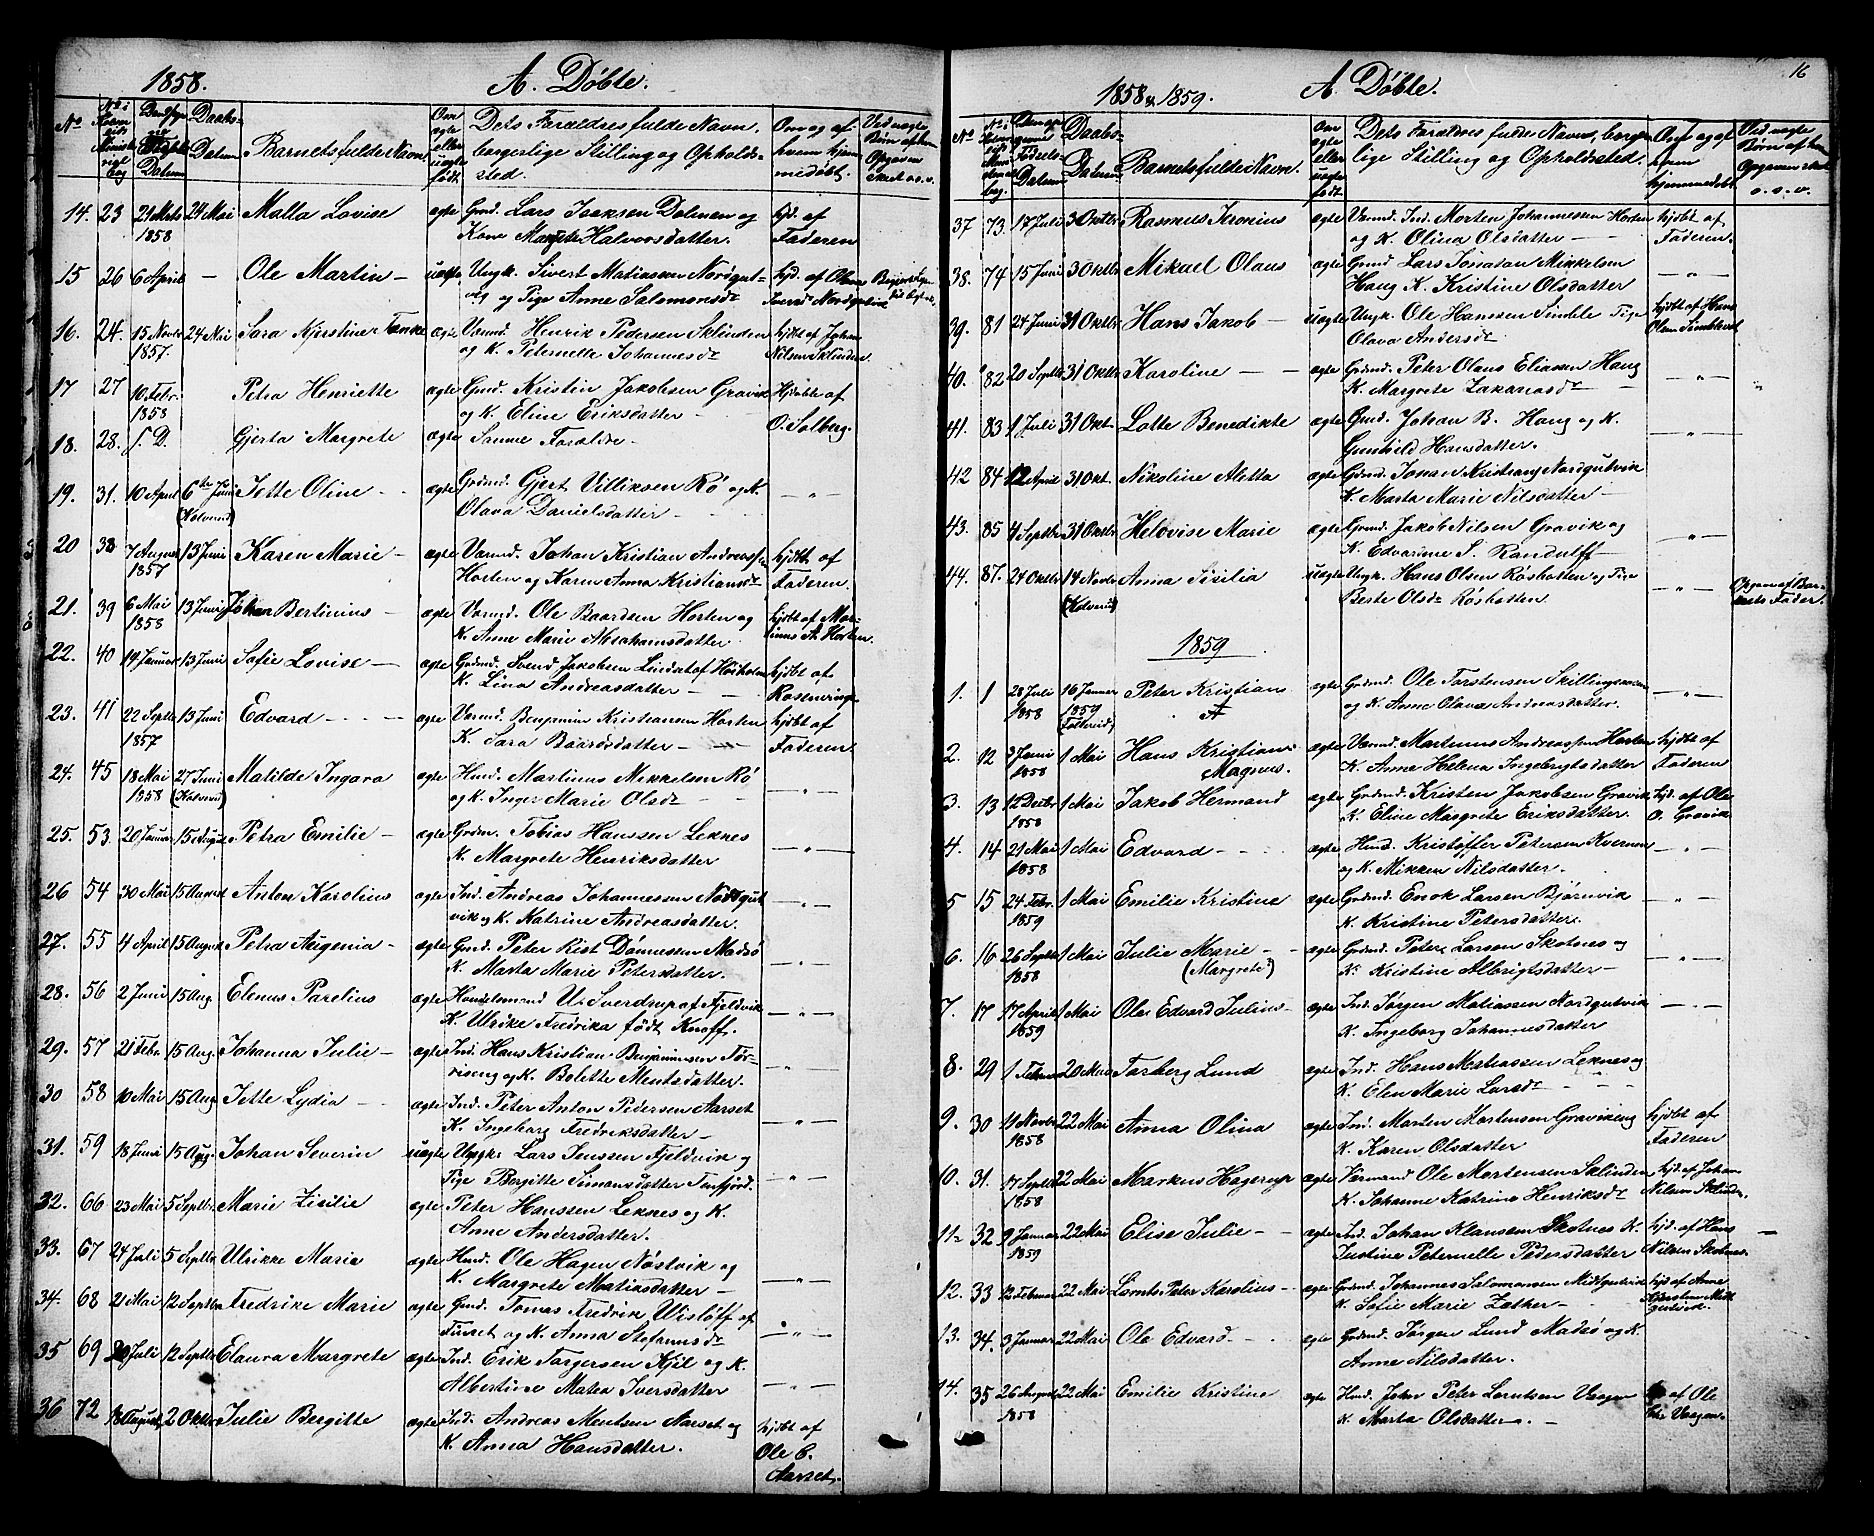 1858.
A. Døbte.
No
Barnets fulde Navn.
Dets Forældres fulde Navn,
borgerlige Stilling og Opholds-
sted.
14. 23 21 Marts 1858 24 Mai Malla Lovise ægte Grd. Lars Isaksen Dalmen og
Kone Margrete Halvorsdatter. hjd. af Faderen
15 26 6 April — Ole Martin — uægte Ungk. Sivert Matiassen Nordgut-
vig og Pige Anne Salomonsdt
16. 24. 15 Novbr 1857. 24 Mai Sara Kjerstine Tanke ægte Varmd. Henrik Pedersen Sklinden
og K. Peternelle Johannesdt hjdbt af Johan Nilsen Sklinden
17 27 10 Febr. 1858 Petra Henriette ægte Grd. Kristen Jakobsen Gravik
og K. Eline Eriksdatter — Hjdøbte af O. Solberg.
18. 28. s. D. Gjerta Margrete ægte Samme Forældre —
19. 31. 10 April 6te Juni (Kolvereid) Jette Oline ægte Grdmd. Gjert Villiksen Rø og K.
Olava Danielsdatter — — " —
20 38 7 August 1857 13 Juni Karen Marie — ægte Varmd. Johan Kristian Andreassen
Horten og Karen Anna Kristiansdt hjdbt. af Faderen.
21. 39 6 Mai 1858 13 Juni Johan Bertinius — ægte Varmd. Ole Baardsen Horten og
K. Anne Marie Abrahamsdatter. hjdbt af Mar-
tinus A. Horten.
22. 40 19 Januar 13 Juni Sofie Lovise — ægte Grdmd. Svend Jakobsen Lindalof Høiholm
K. Lina Andreasdatter — hjdbt af Rosenvinge
23. 41 22 Septbr 1857 13 Juni Edvard — ægte Varmd. Benjamin Kristiansen Horten
K. Sara Baardsdatter — hjdbt af Faderen
24. 45 18 Mai 1858 27 Juni (Kolvereid) Matilde Ingara ægte Husmd. Martinus Mikkelsen Rø
og K. Inger Marie Olsdt — " —
25. 53. 20 Januar 15 August Petra Emilie — ægte Grdm. Tobias Hanssen Leknes
K. Margrete Henriksdatter — " —
26 54 30 Mai 15 August Anton Karolius ægte Ind. Andreas Johannessen Nordgut
vik og K. Katrine Andreasdatter. — " —
27. 55 4 April 15 August Petra Augenia — ægte Grmd. Peter Rist Dønnessen Madsø
K. Marta Marie Petersdatter. — " —
28. 56 2 Juni 15 Aug. Elenus Parelius ægte Handelsmand U. Sverdrup af Fjeldvik
K. Ulrike Fredrika født Knoff. — " —
29. 57 21 Febr. 15 Aug. Johanna Julie — ægte Ind. Hans Kristian Benjaminsen Tør-
riseng og K. Bolette Mentsdatter. — " —
30 58 10 Mai 15 Aug Jette Lydia — ægte Ind. Peter Anton Pedersen Aarset
K. Ingeborg Fredriksdatter — — " —
31. 59 18 Juni 15 Aug. Johan Severin uægte Ungk. Lars Jenssen Fjeldvik og
Pige Bergitte Simonsdatter — " —
32. 66 23 Mai 5 Septbr. Marie Zisilie ægte Peter Hanssen Leknes og K.
Anne Andersdatter.
33. 67 24 Juli 5 Septbr Ulrikke Maria ægte Husmd. Ole Hagen Nøstvik og
K. Margrete Matiasdatter — — " —
34. 68 21 Mai 12 Septbr Fredrike Marie ægte Grmd. Tomas Fredrik Wisløff af
Furset og K. Anna Stefansdt — " —
35 69 20 Juli 12 Septbr Elaura Margrete ægte Ind. Erik Torgersen Kjil og K.
Albertine Matea Iversdatter — " —
36 72 18 August 2 Oktbr Julie Bergitte ægte Ind. Andreas Mentsen Aarset og
K. Anna Hansdatter. hjdbt af Ole C. Aarset.
16
1858 & 1859.
A. Døbte.
No
Daabs-
Datum
Barnets fulde Navn.
Dets Forældres fulde Navn, borger-
lige Stilling og Opholdssted.
37 73. 17 Juli 3 Oktbr Rasmus Kronius ægte Varmd. Ind. Morten Johannessen Horten
og K. Olina Olsdatter — hjdbt af Faderen.
38. 74 15 Juni 3 Oktbr Mikael Olaus ægte Grmd Lars Jonatan Mikkelsen
Haug K. Kristine Olsdatter — " —
39. 81 24 Juni 31 Oktbr Hans Jakob — uægte Ungk. Ole Hanssen Simle Pige
Olava Andersdt hjdbt af Hans
40. 82 20 Septbr 31 Oktbr Karoline — ægte Grdmd. Peter Olaus Eliassen Haug
K. Margrete Zakariasdt — — " —
41. 83 1 Juli 31 Okt. Lotte Benedikte ægte Grmd. Johan B. Haug og K.
Gunhild Hansdatter. — " —
42 84 12 April 31 Okt. Nikoline Aletta ægte Grdmd. Jonas Kristians Nordgutvik
K. Marta Marie Nilsdatter —
43. 85 4 Septbr 31 Oktbr Helovise Marie ægte Grmd. Jakob Nilsen Gravik og
K. Edvardine S. Randulff — — " —
44. 87. 24 Oktbr 14 Novbr (Kolvereid) Anna Sisilia uægte Ungk. Hans Olsen Røshatten og Pige
Berte Olsdt Røshatten. — " — Opgiven af Bar-
nets Fader.
1859
1. 1 28 Juli 1858 16 Januar 1859 (Foldereid) Peter Kristian ægte Grdmd. Ole Torstensen Skillingsaasen
og K. Anne Olava Andreasdatter. — " —
2. 12 3 Juni 1858 1 Mai Hans Kristian Magnus. ægte Varmd. Martinus Andreassen Horten
K. Anne Helena Ingebrigtsdatter hjdbt af Faderen
3. 13 12 Decbr 1858 1 Mai Jakob Hermand ægte Grdmd. Kristen Jakobsen Gravik
K. Eline Margrete Eriksdatter. hjd. af Ole O. Gravik
4. 14 21 Mai 1858 1 Mai Edvard — ægte Husmd. Kristoffer Petersen Kvernen
og K. Mikken Nilsdatter. — " —
5 15 24 Febr. 1859 1 Mai Emilie Kristine ægte Grdmd. Enok Larsen Bjørnvik
K. Kristine Petersdatter. — " —
6. 16 26 Septbr 1858 1 Mai Julie Marie — (Margrete?) ægte Grdmd. Peter Larsen Skotnes og
K. Kristine Albrigtsdatter — — " —
7. 17 17 April 1859 1 Mai Ole Edvard Julius — ægte Ind. Jørgen Matiassen Nordgutvik
K. Ingeborg Johannesdatter — " —
8. 29 1 Februar 20 Mai Torberg Lund ægte Ind. Hans Matiassen Leknes og
K. Elen Marie Larsdt —
9. 30 19 Novbr 1858 22 Mai Anna Olina ægte Ind. Morten Mortensen Graviseng
K. Karen Olsdatter hjdbt af Faderen
10. 31. 17 Septbr 1858 22 Mai Markus Hagerup ægte Varmand Ole Mortensen Sklinden
K. Johanne Katrine Henriksdt hjd. af Johan Nilsen Sklinden.
11. 32 9 Januar 1859 22 Mai Elise Julie — ægte Ind. Johan Klausen Skotnes K.
Justine Peternelle Pedersdatter hjd. af Hans Nilsen Skotnes.
12. 33 12 Februar 22 Mai Lornts Peter Karolius — ægte Grdmd. Johannes Salomonsen Midtgutvik
K. Sofie Marie Zather — hjd. af Anne
13. 34. 3 Januar 22 Mai Ole Edvard — ægte Grdmd. Jørgen Lund Madsø og K.
Anne Nilsdatter.
14. 35 26 August 1858 22 Mai Emilie Kristine ægte Husmd. John Peter Lorntsen Vaagan
K. Marta Olsdatter — hjd af Ole Vaagan.